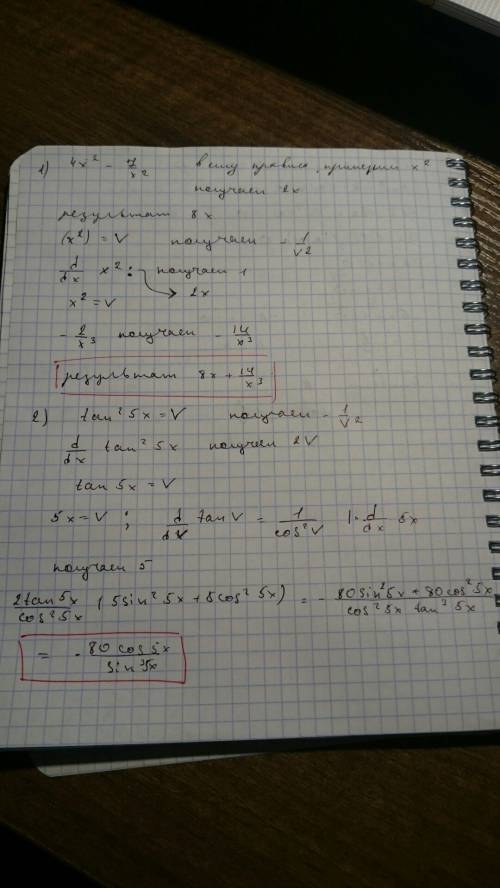 1) 4x² - 7/x² в силу правила, примерим x²
получаем 2x
результат 8x
(x²) = V получаем - 1/V²
d/dx x² : получаем 1
x² = V → 2x
- 2/x³ получаем - 14/x³
результат 8x + 14/x³
2) tan² 5x = V получаем - 1/V²
d/dx tan² 5x получаем 2V
tan 5x = V
5x = V ; d/dV tan V = 1/cos² V 1 · d/dx 5x
получаем 5
2tan5x/cos²5x (5sin² 5x + 5cos² 5x) = - 80sin²5x + 80cos²5x/cos²5x tan³ 5x
= - 80 cos 5x/sin³5x